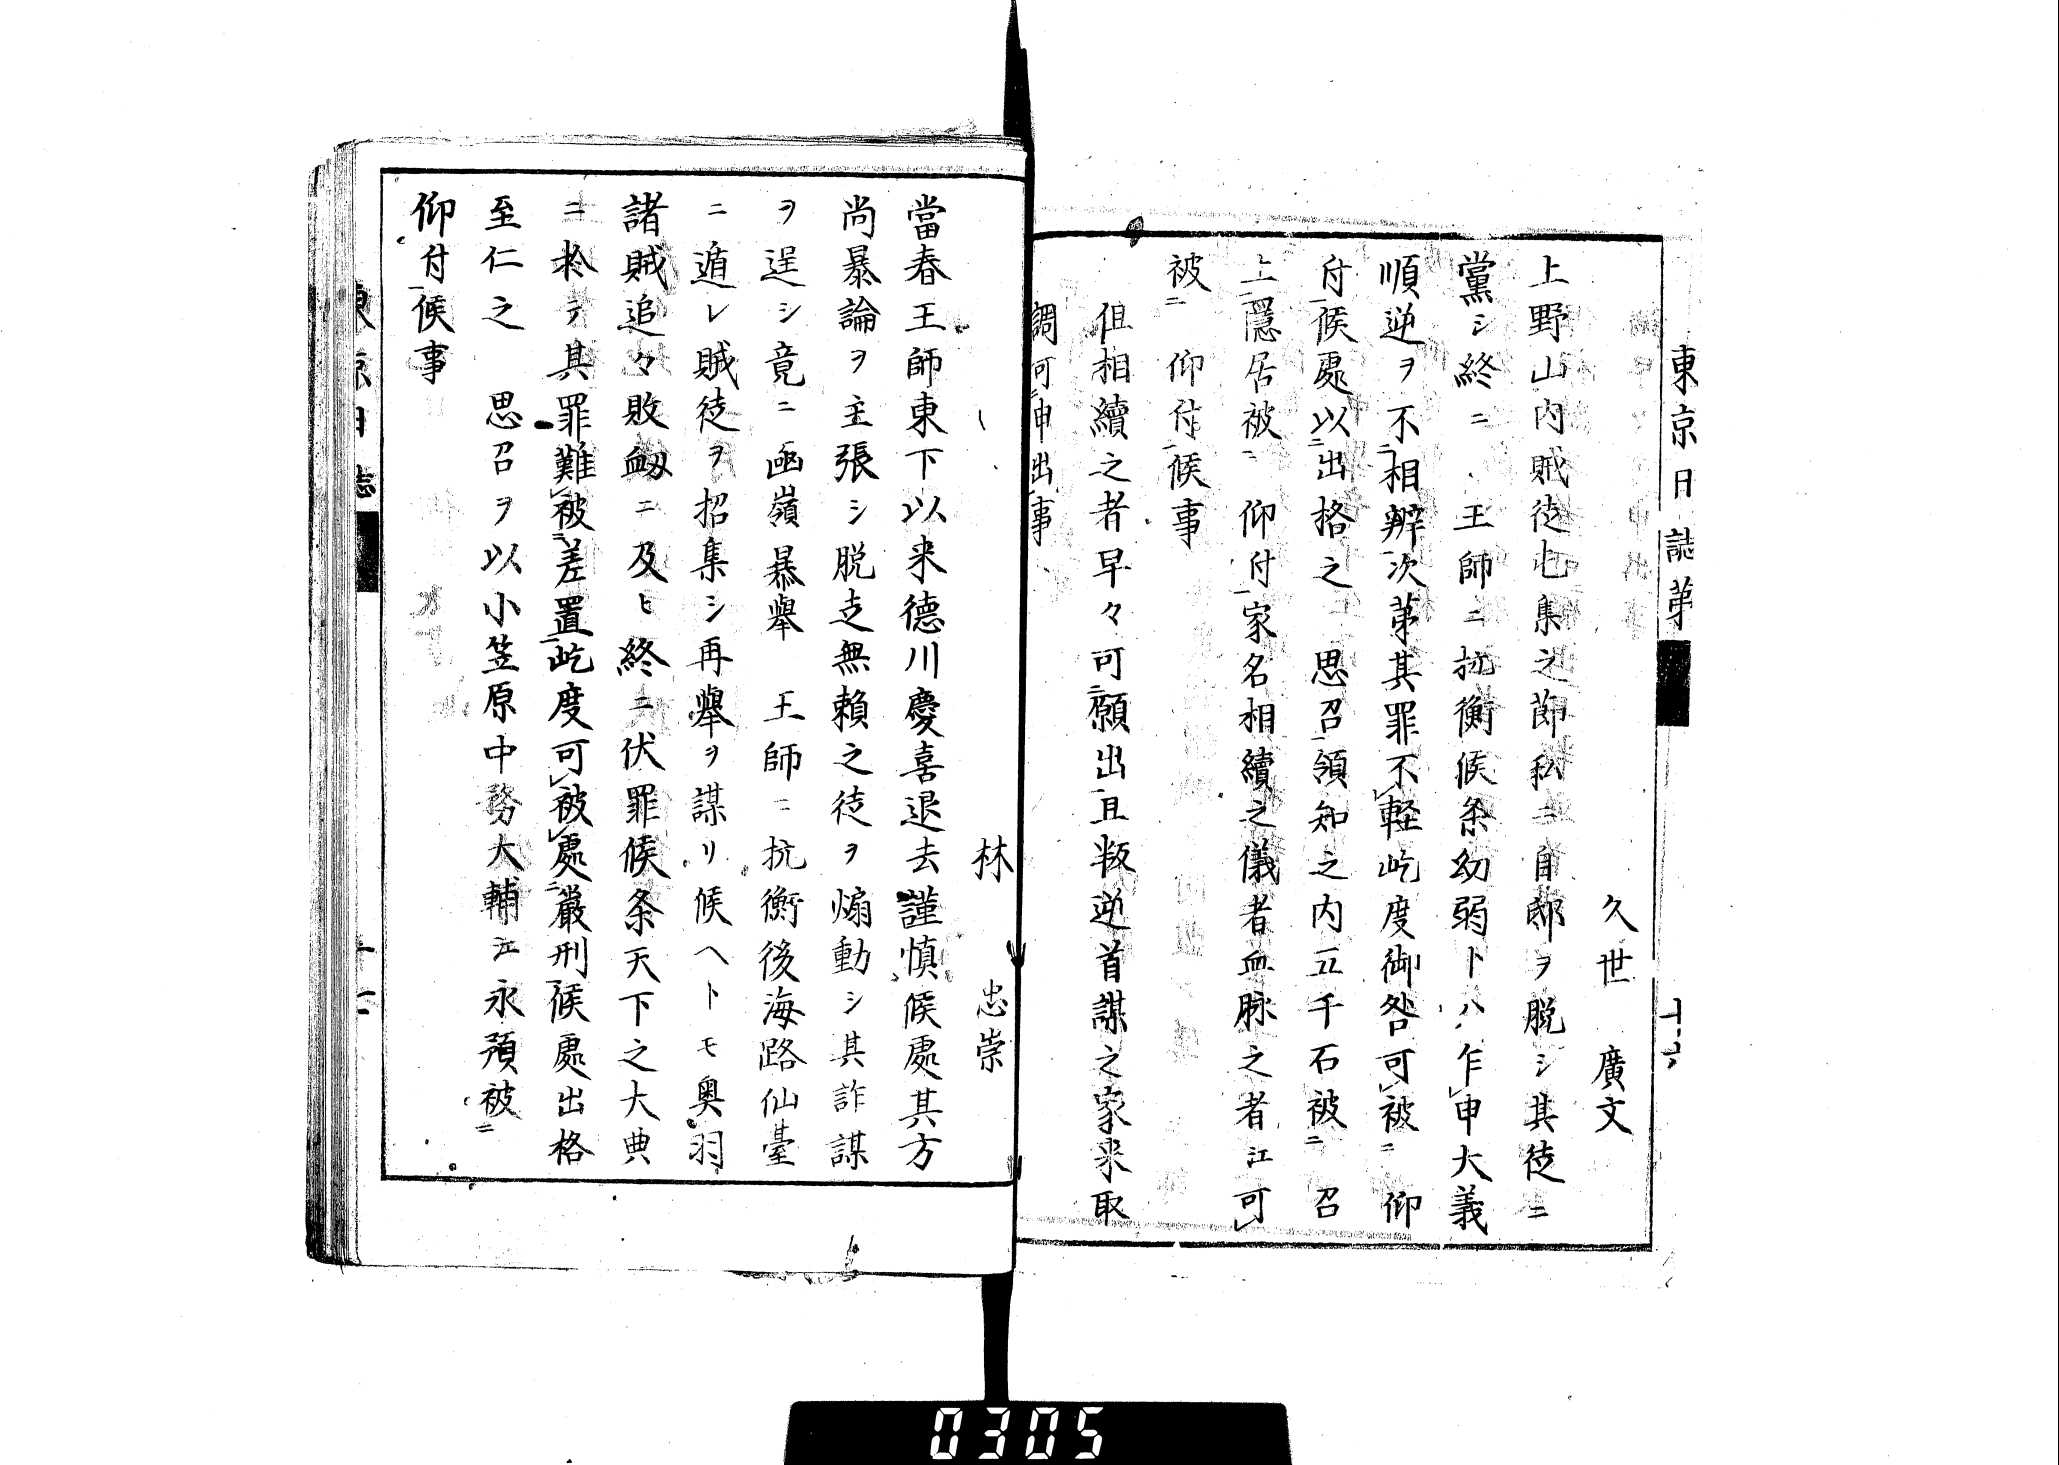 東京日誌第
十六
久世 廣文
上野山内賊徒屯集之節私ニ自邸ヲ脱シ其徒ニ
黨シ終ニ 王師ニ抗衡候条幼弱トハ乍申大義
順逆ヲ不相辨次第其罪不軽屹度御咎可被 仰
付候處以出格之 思召領知之内五千石被 召
上隠居被 仰付家名相續之儀者血脉之者江可
被 仰付候事
但相續之者早々可願出且叛逆首謀之家来取
調可申出事
林 忠崇
當春王師東下以来德川慶喜退去謹慎候處其方
尚暴論ヲ主張シ脱走無賴之徒ヲ煽動シ其詐謀
ヲ逞シ竟ニ凾嶺暴擧 王師ニ抗衡後海路仙臺
ニ遁レ賊徒ヲ招集シ再擧ヲ謀リ候ヘトモ奥羽
諸賊追々敗衂ニ及ヒ終ニ伏罪候条天下之大典
ニ於テ其罪難被差置屹度可被處嚴刑候處出格
至仁之 思召ヲ以小笠原中務大輔江永預被
仰付候事
東京日誌
0305